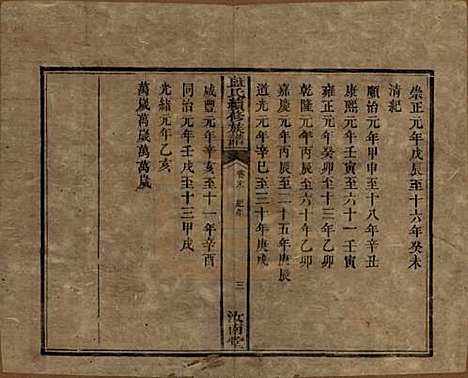 崇正元年戊辰至十六年癸未
清紀
順治元年甲申至十八年辛丑
康熙元年壬寅至六十一年壬寅
雍正元年癸卯至十三年乙卯
乾隆元年丙辰至六十年乙卯
嘉慶元年丙辰至二十五年庚辰
道光元年辛巳至三十年庚戌
氏續修族譜
卷末
三
汝南堂
咸豐元年辛亥至十一年辛酉
同治元年壬戌至十三甲戌
光緒元年乙亥
萬歲萬歲萬萬歲